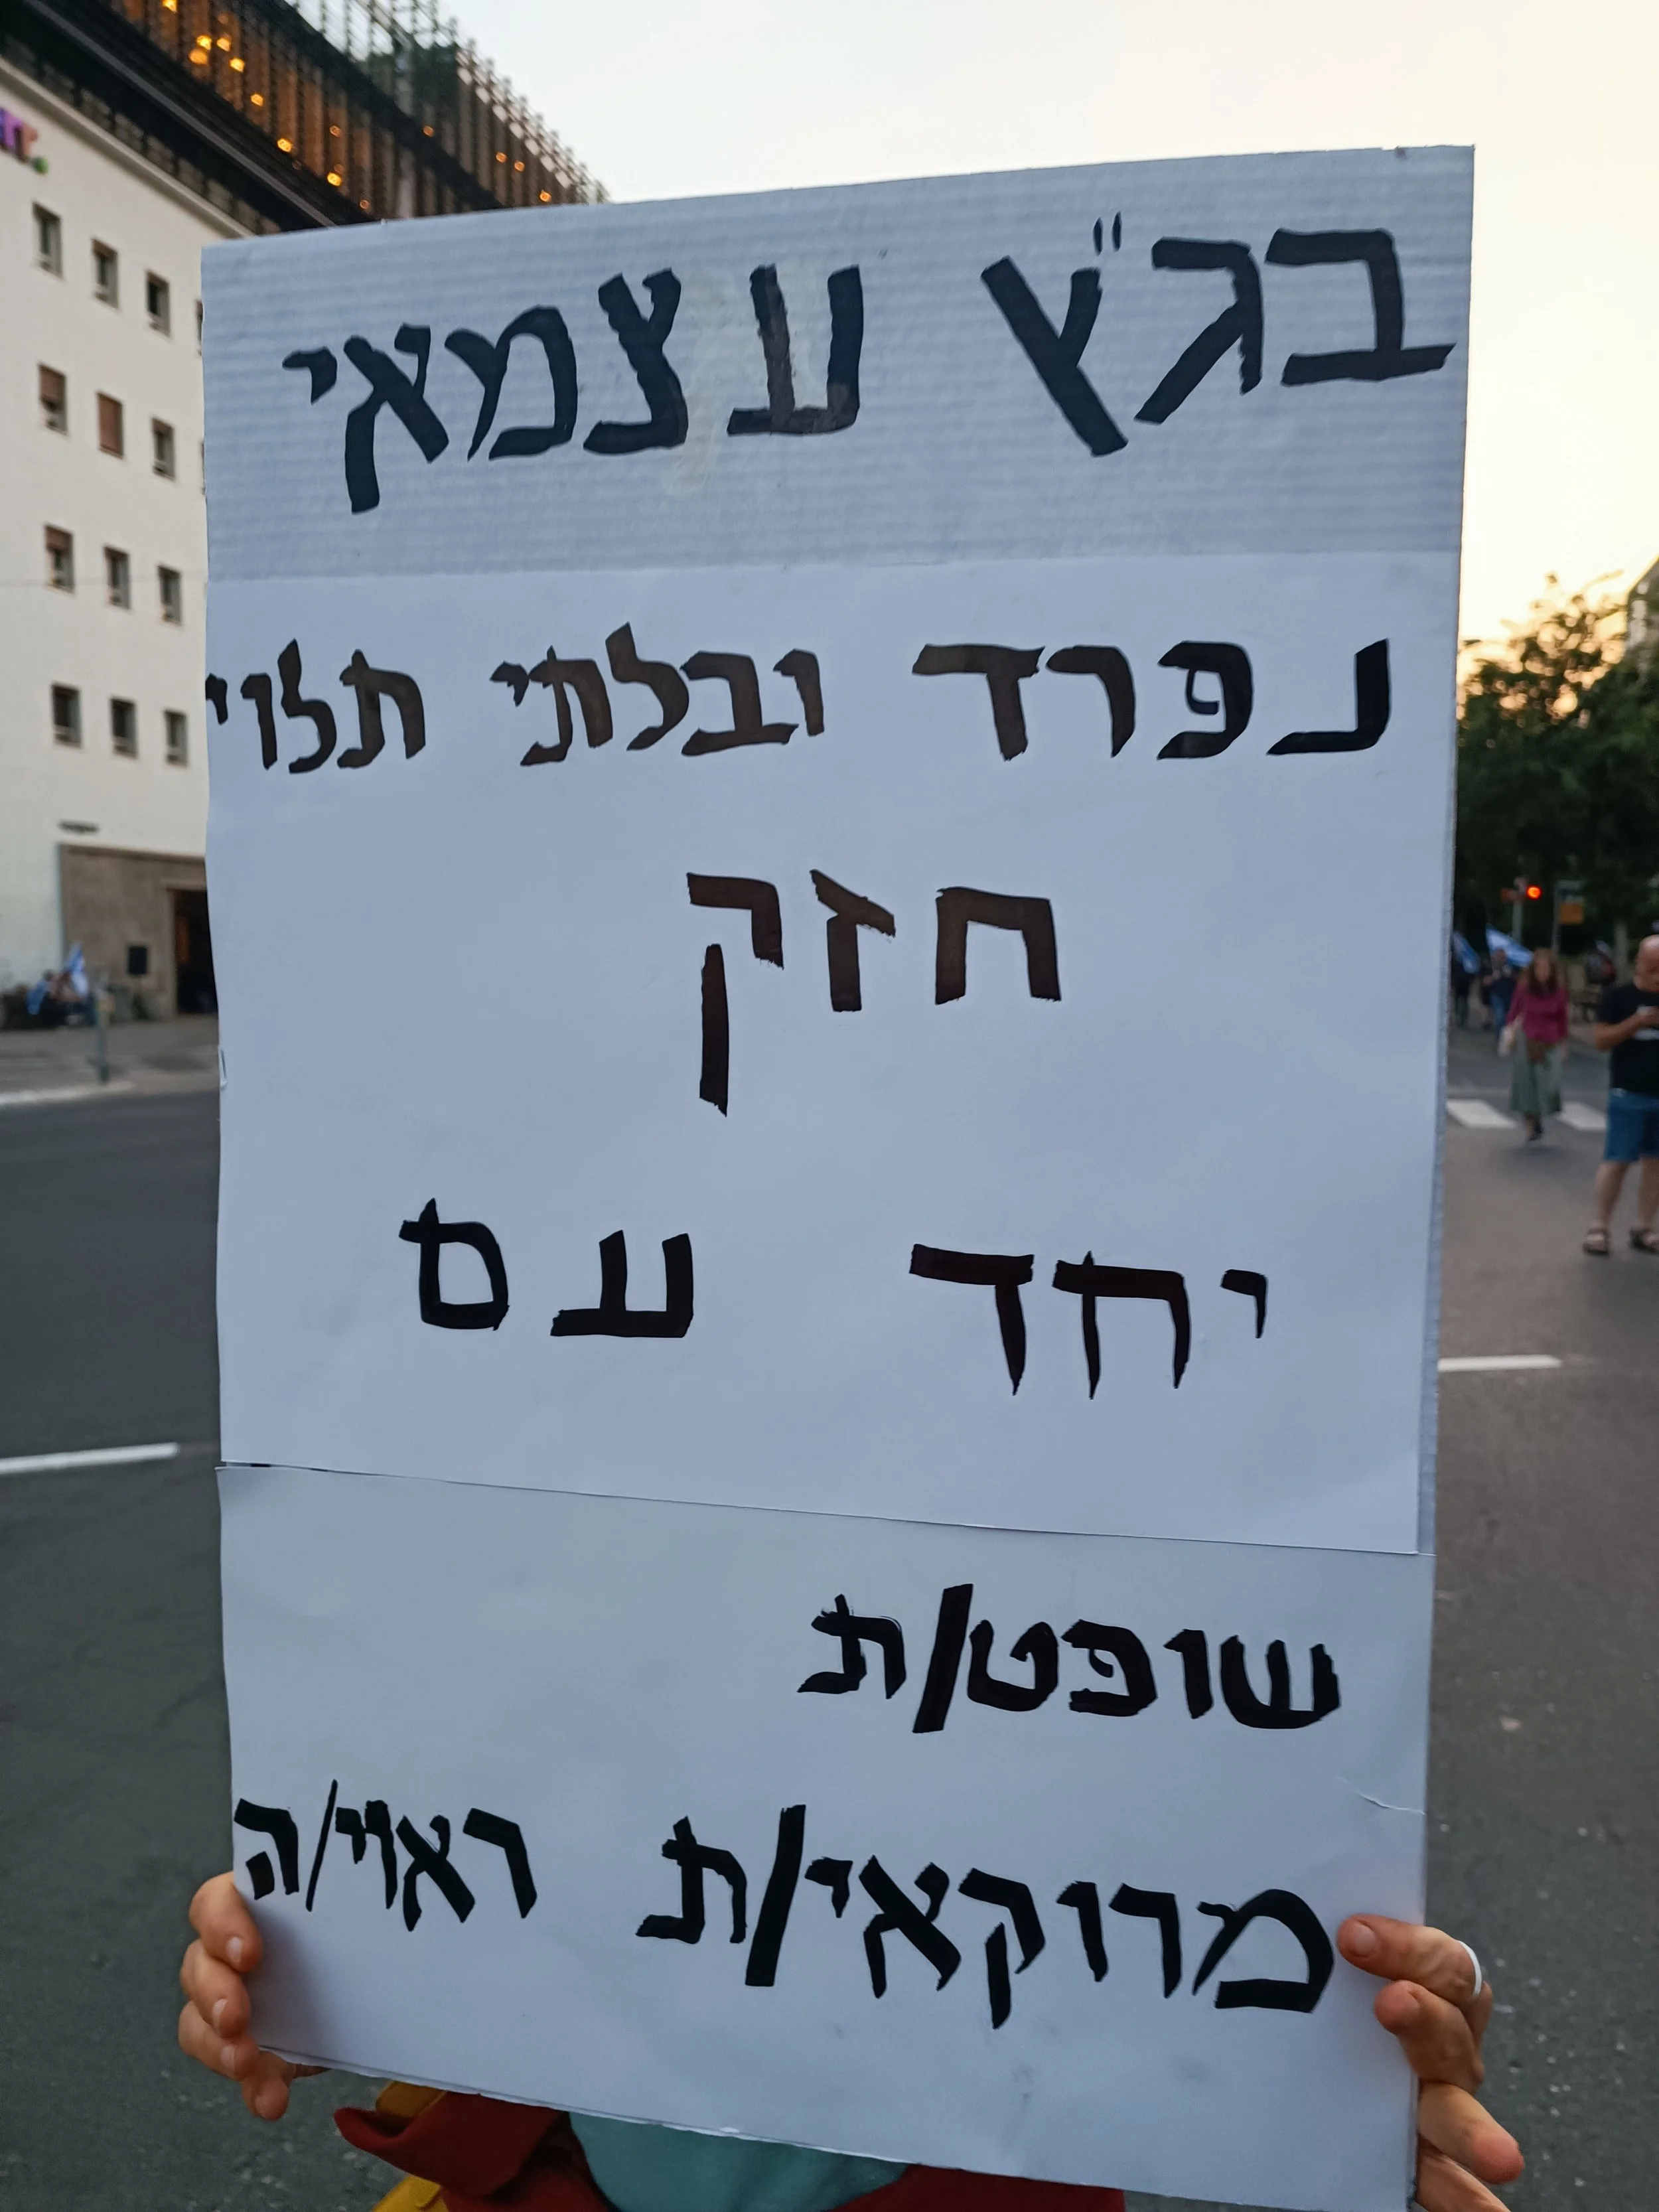 בג"ץ עצמאי
נפרד ובלתי תלוי
חזק
יחד עם
שופט/ת
מרוקאי/ת ראוי/ה